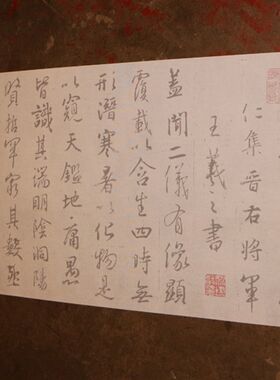 仁集晉右將軍
王羲之書
蓋聞二儀有像顯
覆載以含生四時無
形潛寒暑以化物是
以窺天鑑地庸愚
皆識其端明陰洞陽
賢哲罕窮其數然